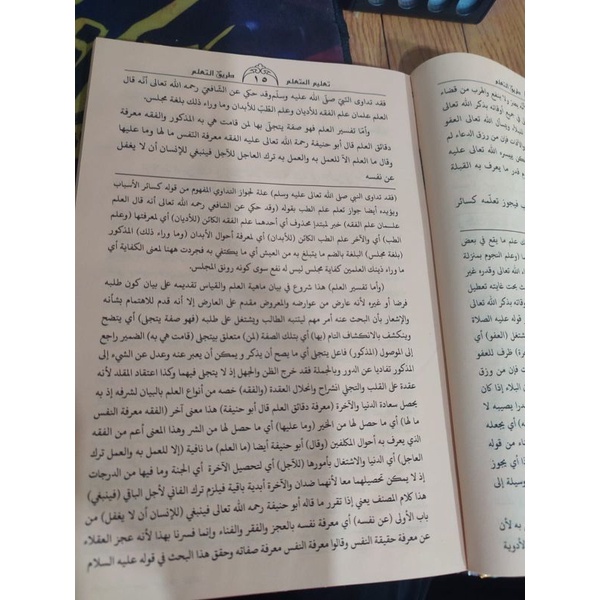 تعليم المتعلم ١٥ طريق التعلم
فقد تداوى النبيّ صلّى الله عليه وسلّم وقد حكي عن الشّافعيّ رحمه الله تعالى أنّه قال
العلم علمان علم الفقه للأديان وعلم الطّبّ للأبدان وما وراء ذلك بلغة مجلس.
وأمّا تفسير العلم فهو صفة يتجلّى بها لمن قامت هي به المذكور والفقه معرفة
دقائق العلم قال أبو حنيفة رحمه الله تعالى عليه الفقه معرفة النّفس ما لها وما عليها
وقال ما العلم إلاّ للعمل به والعمل به ترك العاجل للآجل فينبغي للإنسان أن لا يغفل
عن نفسه
(فقد تداوى النبي صلى الله تعالى عليه وسلم) علة لجواز التداوي المفهوم من قوله كسائر الأسباب
ويؤيده أيضا جواز تعلم علم الطب بقوله (وقد حكي عن الشافعي رحمه الله تعالى أنه قال العلم
علمان علم الفقه) خبر لمبتدإ محذوف أي أحدهما علم الفقه الكائن (للأديان) أي لمعرفتها (وعلم
الطب) أي والآخر علم الطب الكائن (للأبدان) أي لمعرفة أحوال الأبدان (وما وراء ذلك) المذكور
(بلغة مجلس) البلغة بالضم ما يتبلغ به من العيش أي ما يكتفي به فجردت ههنا لمعنى الكفاية أي
ما وراء ذينك العلمين كفاية مجلس ليس له نفع سوى كونه رونق المجلس.
(وأما تفسير العلم) هذا شروع في بيان ماهية العلم والقياس تقديمه على بيان كون طلبه
فرضا أو غيره لأنه عارض من عوارضه والمعروض مقدم على العارض إلا أنه قدم للاهتمام بشأنه
والإشعار بأن البحث عنه أمر مهم لينتبه الطالب ويشتغل على طلبه (فهو صفة يتجلى) أي يتضح
وينكشف بالانكشاف التام (بها) أي بتلك الصفة (لمن) متعلق بيتجلى (قامت هي به) الضمير راجع
إلى الموصول (المذكور) فاعل يتجلى أي ما يصح أن يذكر ويمكن أن يعبر عنه وعدل عن الشيء إلى
المذكور تفاديا عن الدور وبالجملة فقد خرج الظن والجهل إذ لا تجلي فيهما وكذا اعتقاد المقلد لأنه
عقدة على القلب والتجلي انشراح وانحلال العقدة (والفقه) خصه من أنواع العلم بالبيان لشرفه إذ به
يحصل سعادة الدنيا والآخرة (معرفة دقائق العلم قال أبو حنيفة) هذا معنى آخر (الفقه معرفة النفس
ما لها) أي ما حصل لها من الخير (وما عليها) أي ما حصل لها من الشر وهذا المعنى أعم من الفقه
الذي يعرف به أحوال المكلفين (وقال) أبو حنيفة أيضا (ما العلم) ما نافية (إلا للعمل به والعمل به ترك
العاجل) أي الدنيا والاشتغال بأمورها (للآجل) أي لتحصيل الآخرة أي الجنة وما فيها من الدرجات
إذ لا يمكن تحصيلهما معا لأنهما ضدان والآخرة أبدية باقية فيلزم ترك الفاني لأجل الباقي (فينبغي)
هذا كلام المصنف يعني إذا تقرر ما قاله أبو حنيفة رحمه الله تعالى فينبغي (للإنسان أن لا يغفل) من
باب الأولى (عن نفسه) أي معرفة نفسه بالعجز والفقر والفناء وإنما فسرنا بهذا لأنه عجز العقلاء
عن معرفة حقيقة النفس وقالوا معرفة النفس معرفة صفاته وحقق هذا البحث في قوله عليه السلام